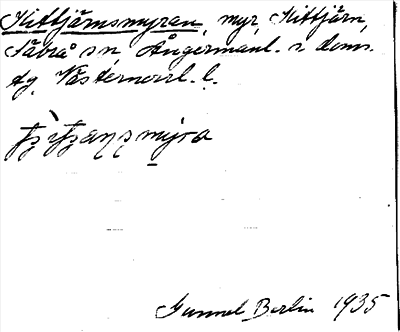 Kittjärnsmyran, myr, Kittjärn,
Säbrå sn, Ångermanl. s. doms.
dg, Västernorrl. l.
Gunnel Berlin 1935